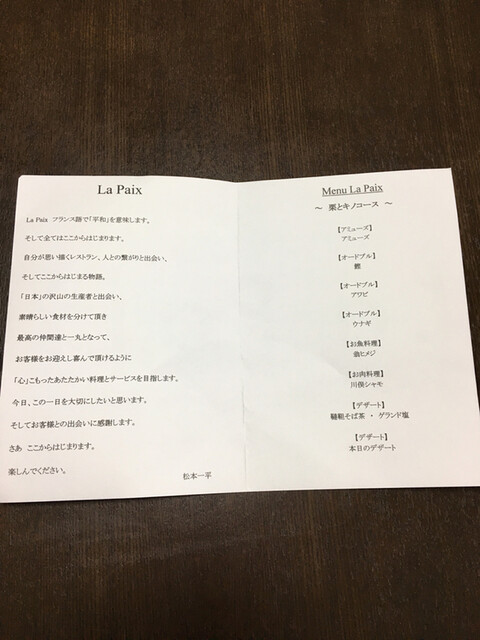 La Paix
La Paix フランス語で「平和」を意味します。
そして全てはここからはじまります。
自分が思い描くレストラン、人との繋がりと出会い、
そしてここからはじまる物語。
「日本」の沢山の生産者と出会い、
素晴らしい食材を分けて頂き
最高の仲間達と一丸となって、
お客様をお迎えし喜んで頂けるように
「心」こもったあたたかい料理とサービスを目指します。
今日、この一日を大切にしたいと思います。
そしてお客様との出会いに感謝します。
さあ ここからはじまります。
楽しんでください。
松本一平
Menu La Paix
～ 栗とキノコース ～
【アミューズ】
アミューズ
【オードブル】
鰹
【オードブル】
アワビ
【オードブル】
ウナギ
【お魚料理】
翁ヒメジ
【お肉料理】
川俣シャモ
【デザート】
韃靼そば茶 ・ ゲランド塩
【デザート】
本日のデザート